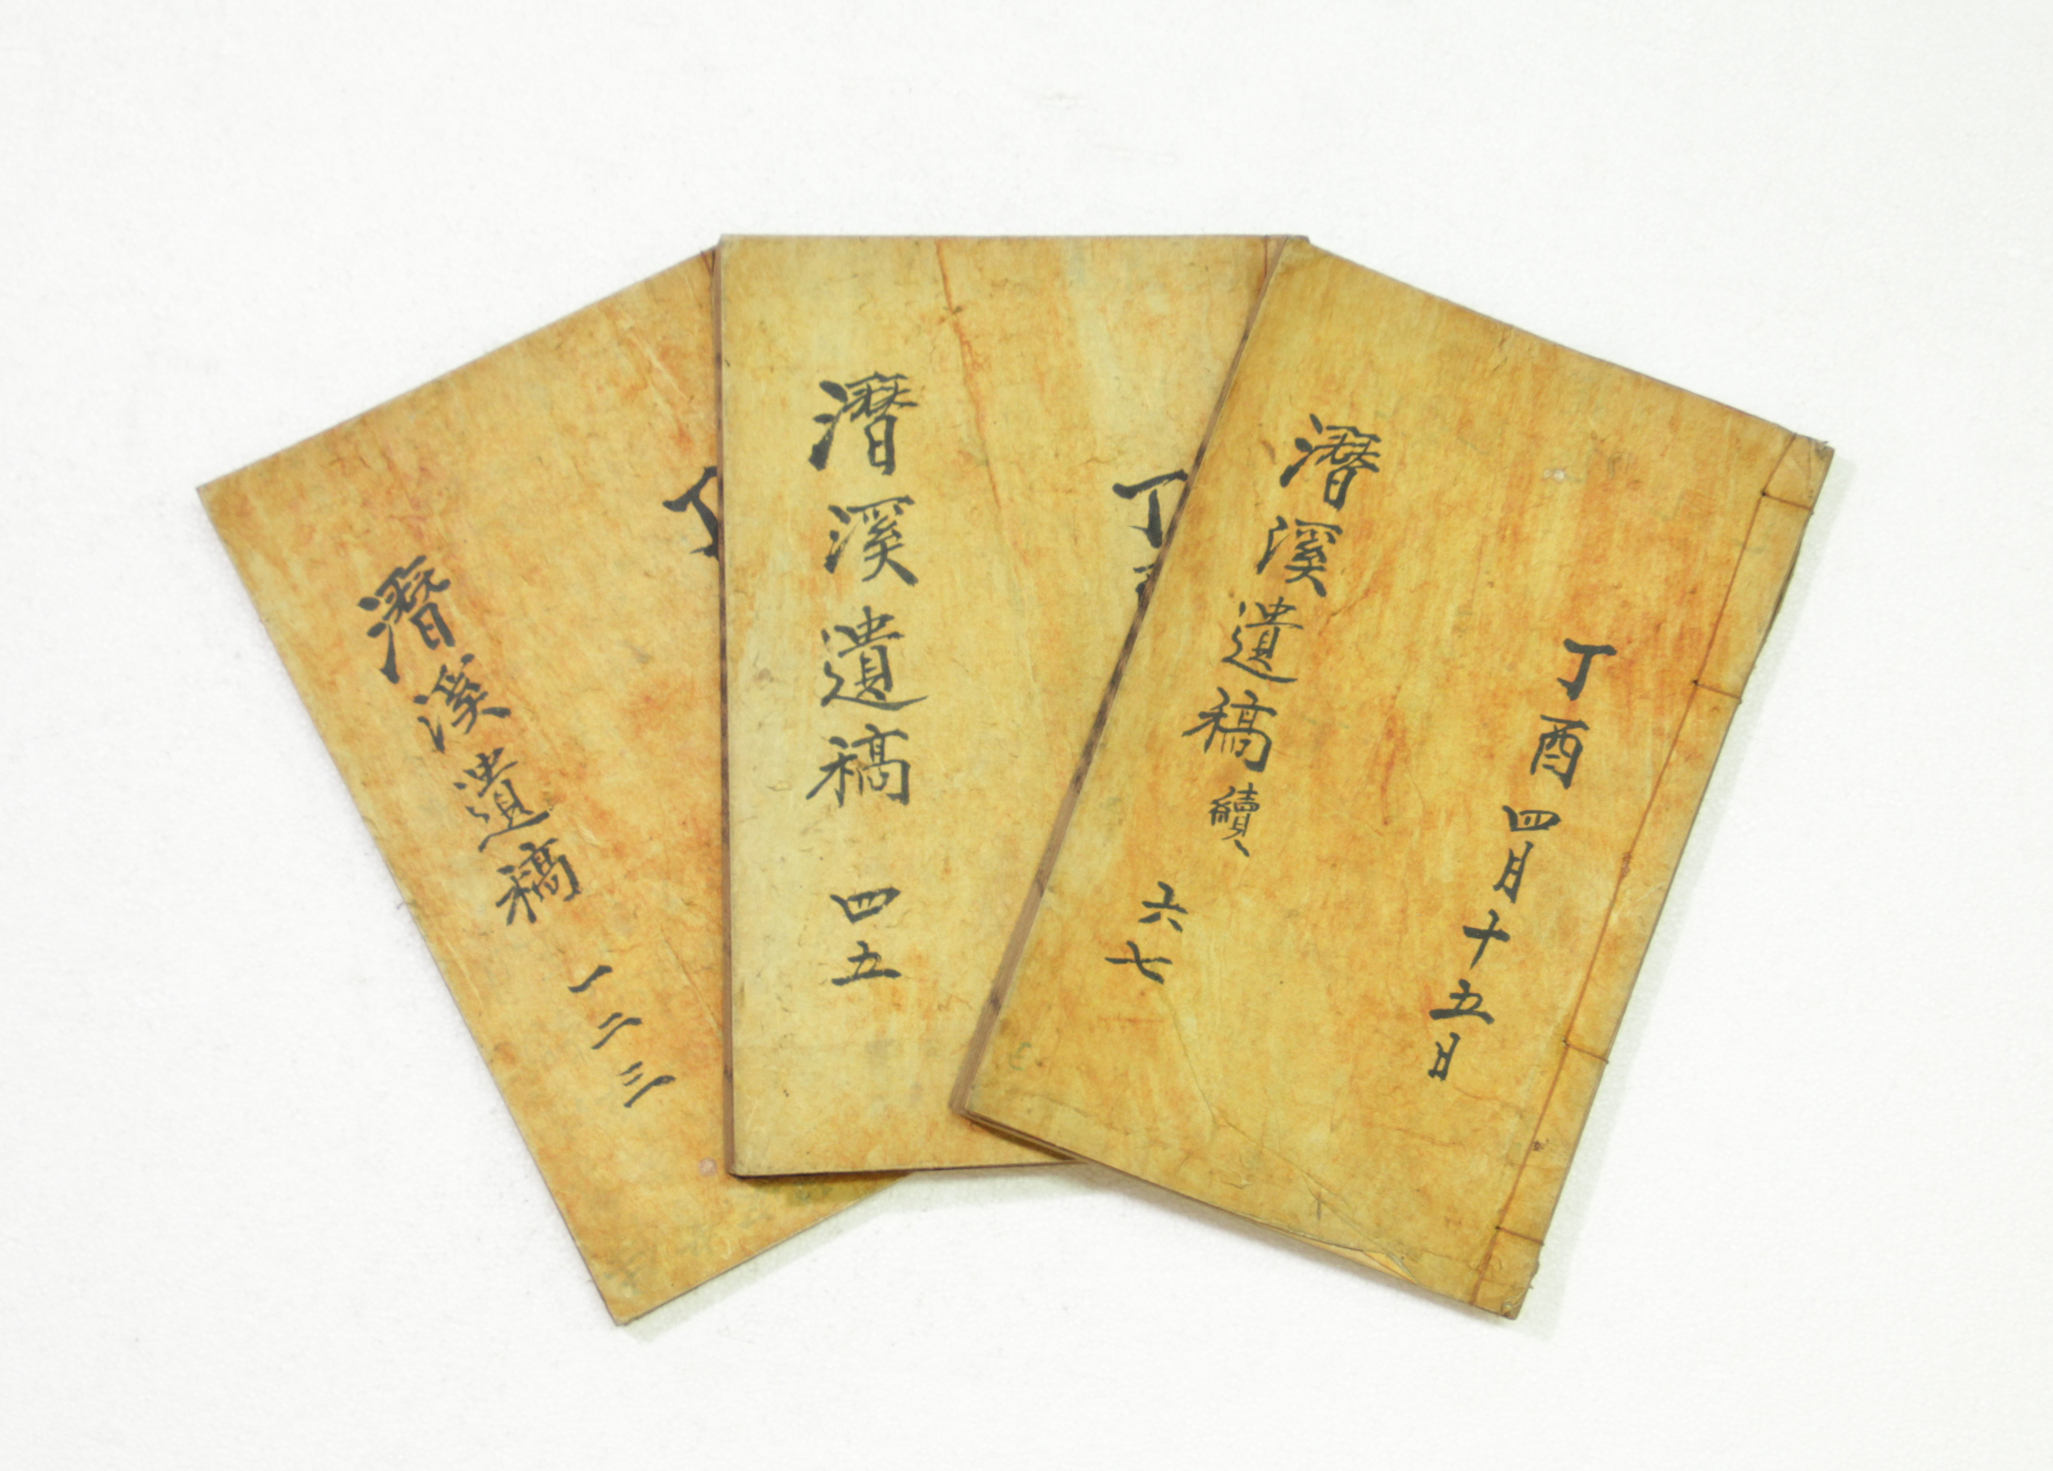 潛溪遺稿 一二三
丁
潛溪遺稿 四五
丁
潛溪遺稿 續 六七
丁酉四月十五日